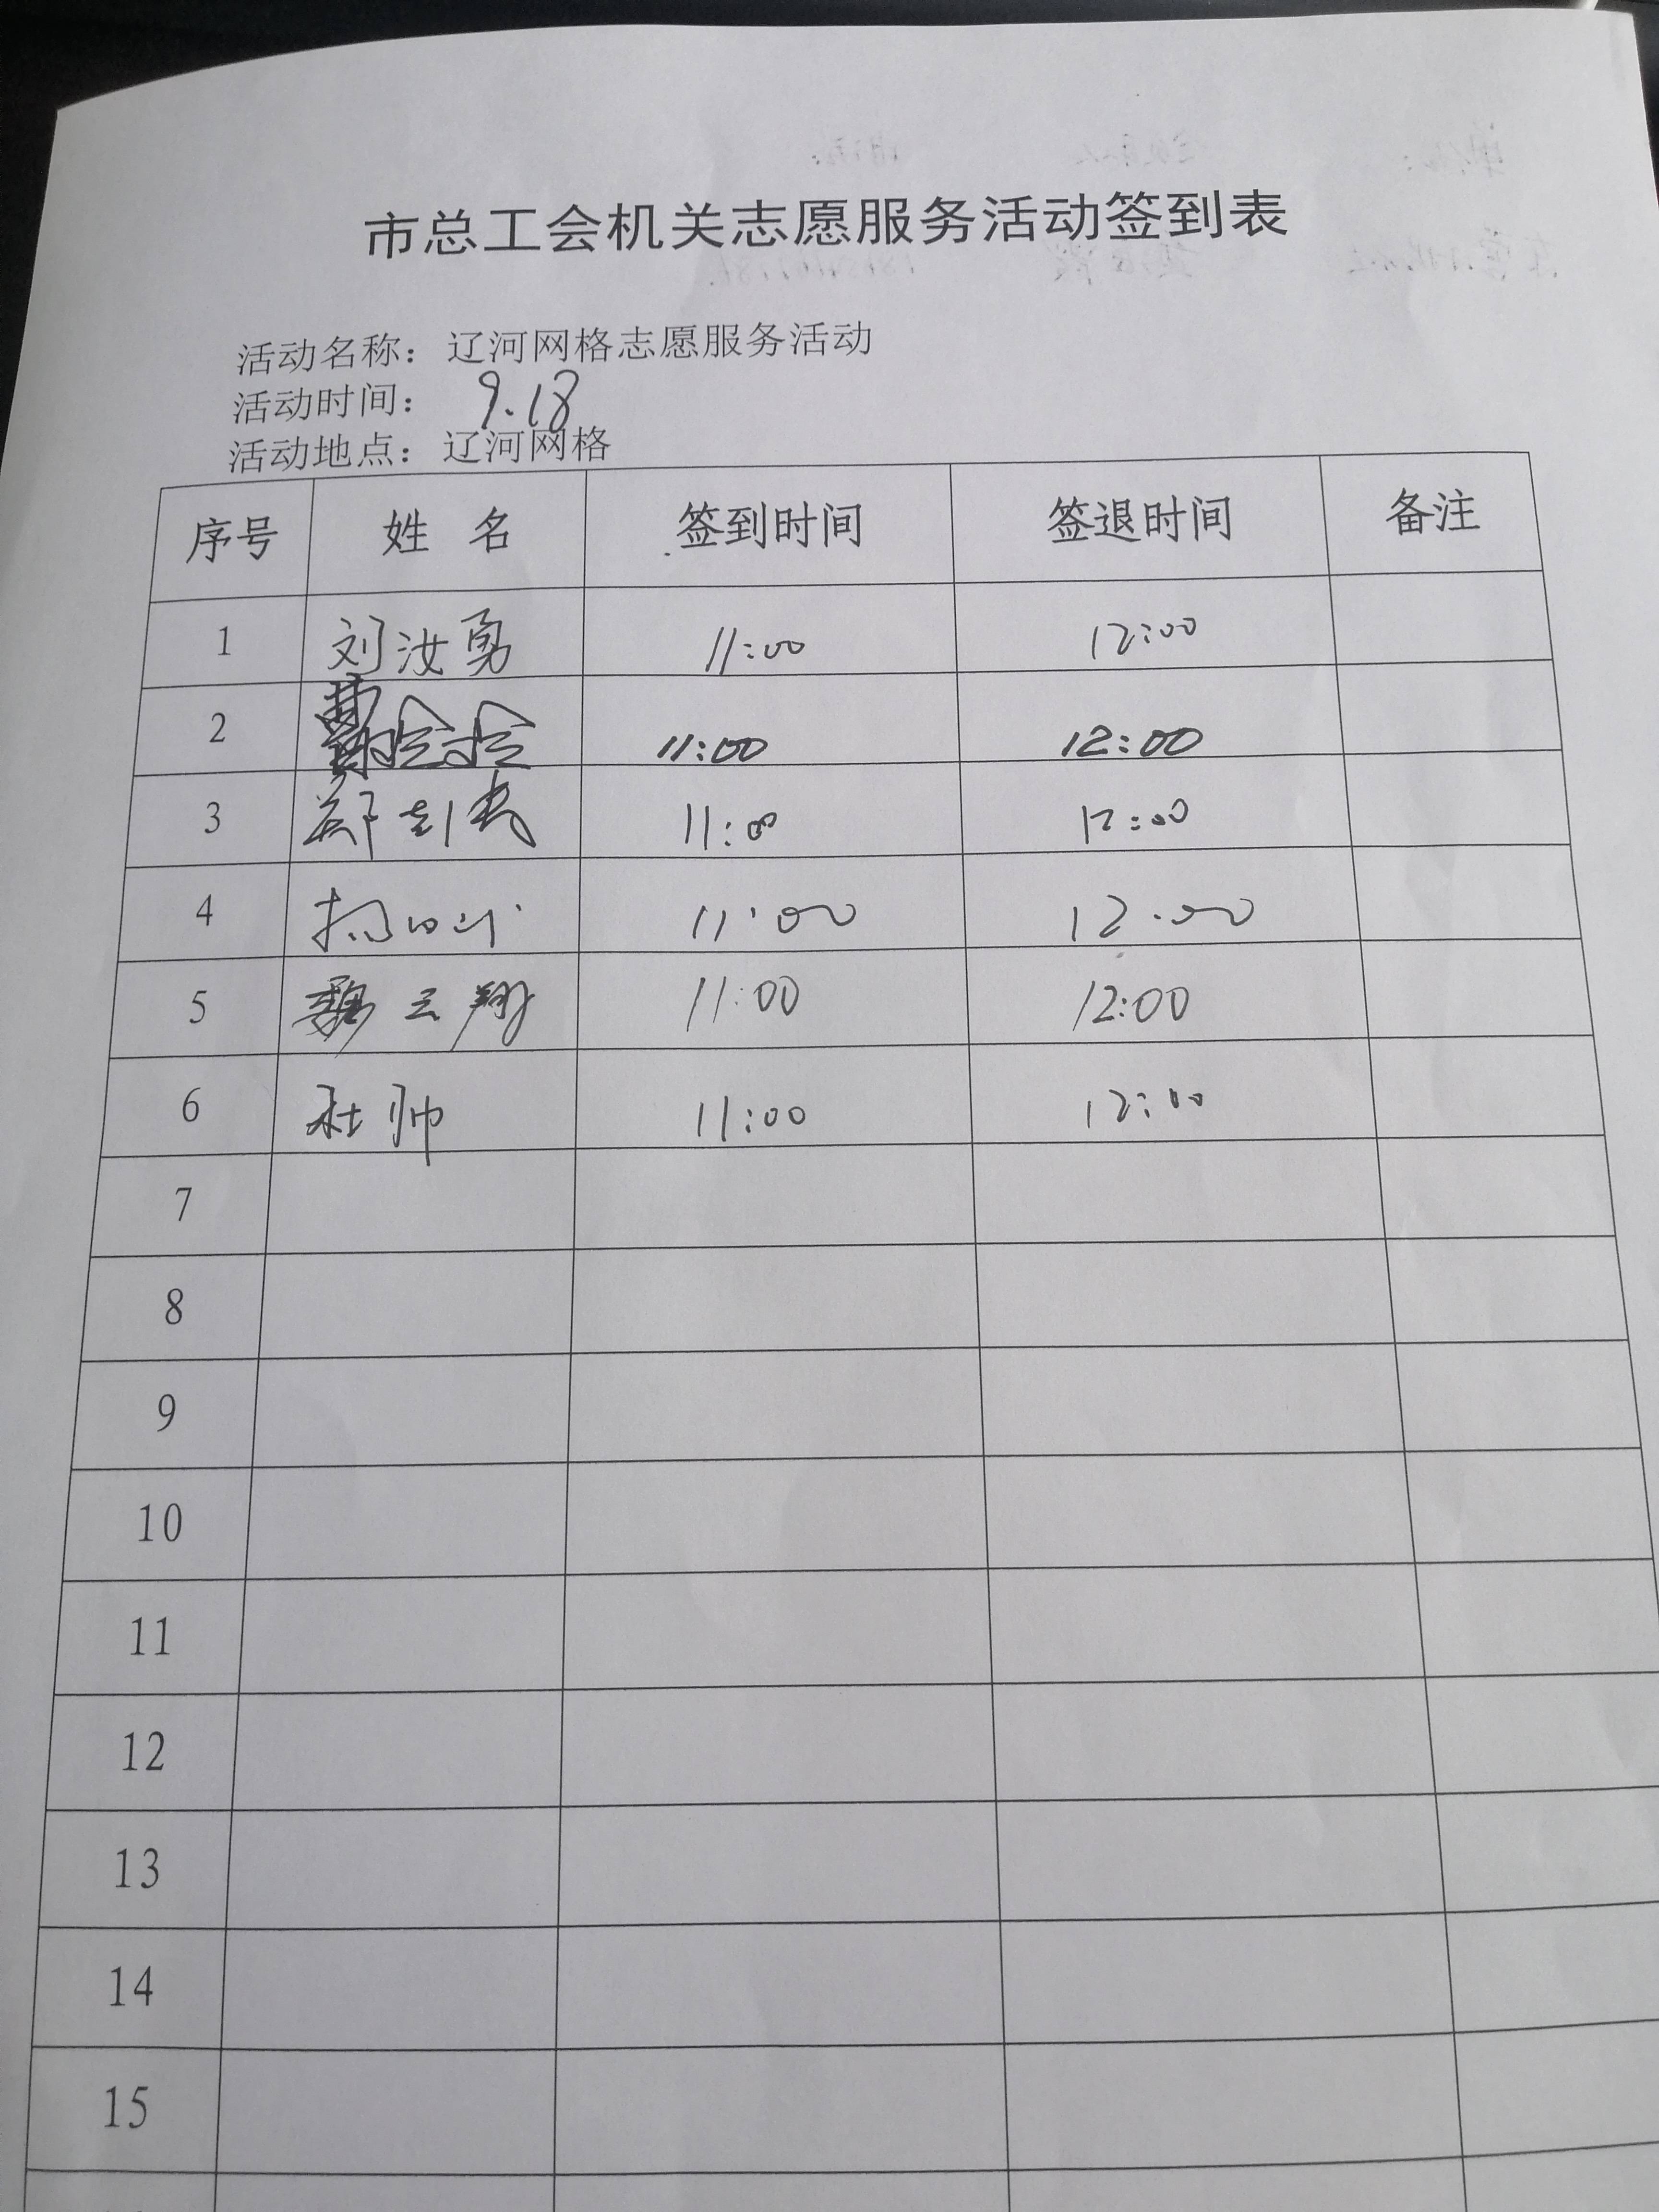 市总工会机关志愿服务活动签到表
活动名称：辽河网格志愿服务活动
活动时间：9.18
活动地点：辽河网格
序号 姓 名 签到时间 签退时间 备注
1 刘汝勇 11:00 12:00
2 11:00 12:00
3 郑 11:00 12:00
4 11:00 12:00
5 魏云翔 11:00 12:00
6 杜帅 11:00 12:00
7
8
9
10
11
12
13
14
15